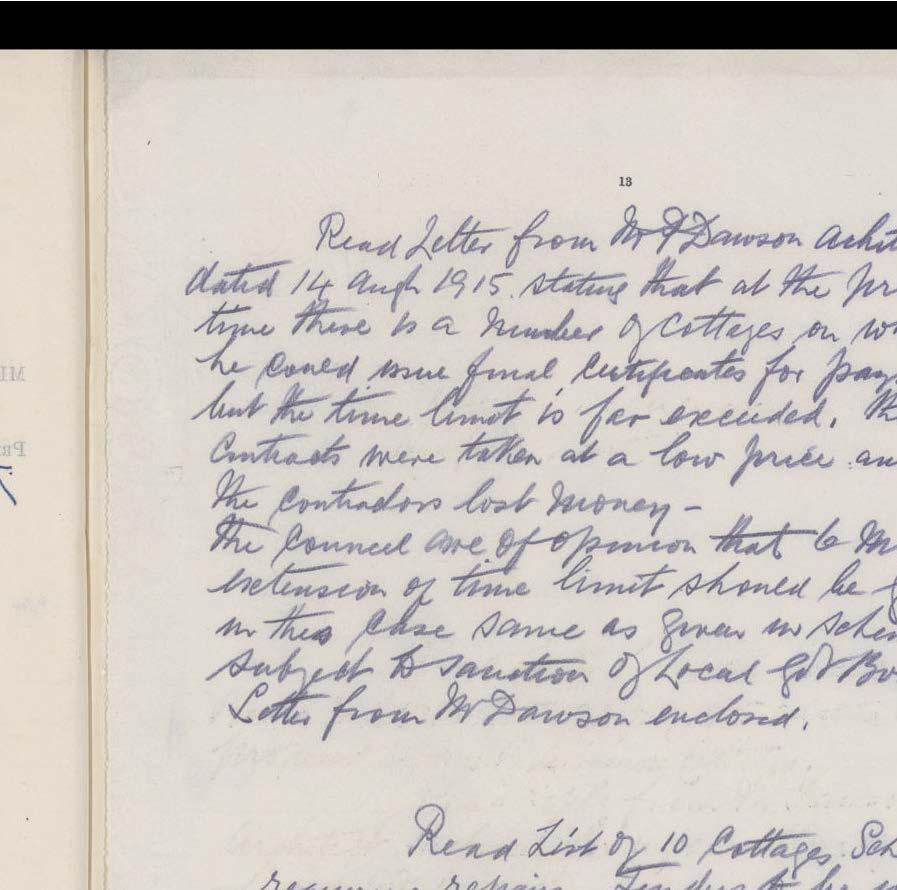 13
Read Letter from Mr F Dawson Achit
dated 14 Augt 1915. stating that at the pr
time there is a number of Cottages on wh
he could issue final Certificates for pay
but the time limit is far exceeded. Th
Contracts were taken at a low price an
the contractors lost money -
The Council are of opinion that 6 M
extension of time limit should be g
in this Case same as given in Schem
subject to sanction of Local Govt Bo
Letter from Mr Dawson enclosed.
Read List of 10 Cottages. Sch
requiring repairs. Tenders to be